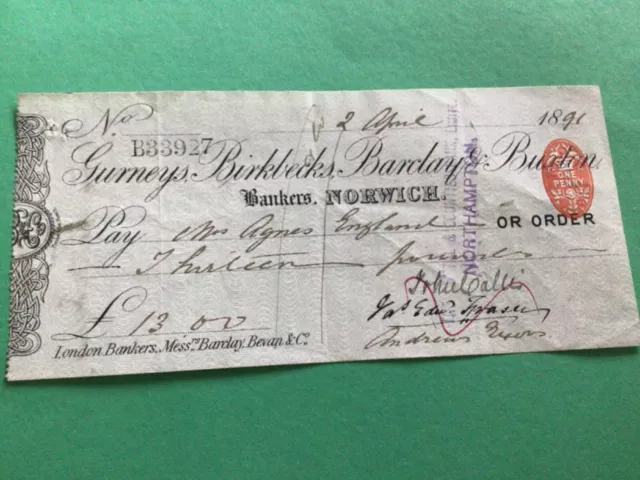 No 2 April 1891
B33927
Gurneys, Birkbecks, Barclay & Buxton
Bankers. NORWICH.
Pay Mrs Agnes England OR ORDER
Thirteen pounds
John Callis
£ 13 00 Jas Edwd Fraser
London Bankers, Messrs. Barclay, Bevan & Co. Andrew
ONE
PENNY
NORTHAMPTON.